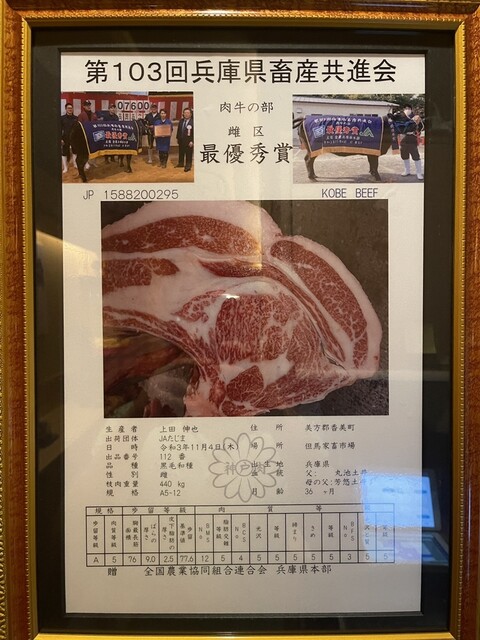 第103回兵庫県畜産共進会
肉牛の部
雌 区
最優秀賞
07600
最優秀賞
最優秀賞
JP 1588200295
KOBE BEEF
生 産 者 上田 伸也 住 所 美方郡香美町
出荷団体 JAたじま
日 時 令和3年11月4日(木) 場 所 但馬家畜市場
出品番号 112 番
品 種 黒毛和種 出 生 地 兵庫県
性 別 雌 父: 丸池土井
枝肉重量 440 kg 母の父:芳悠土井
規 格 A5-12 月 齢 36 ヶ月
規格 歩留等級 肉質等級
歩留等級 肉質等級 胸最長筋面積 ばらの厚さ 皮下脂肪の厚さ 歩留基準値 BMSNo 脂肪交雑等級 BCSNo 光沢 等級 締まり きめ 等級 BFSNo 光沢と質 等級
A 5 76 9.0 2.5 77.6 12 5 4 5 5 5 5 5 3 5 5
贈 全国農業協同組合連合会 兵庫県本部